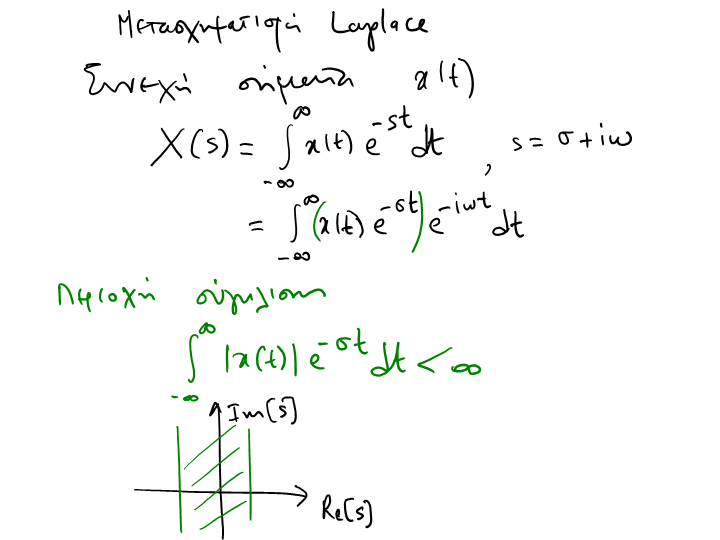 Μετασχηματισμοί Laplace
Συνεχή σήματα x(t)
X(s) = ∫_{-∞}^{∞} x(t) e^{-st} dt , s = σ + iω
= ∫_{-∞}^{∞} (x(t) e^{-σt}) e^{-iωt} dt
Περιοχή σύγκλισης
∫_{-∞}^{∞} |x(t)| e^{-σt} dt < ∞
Im[s]
Re[s]